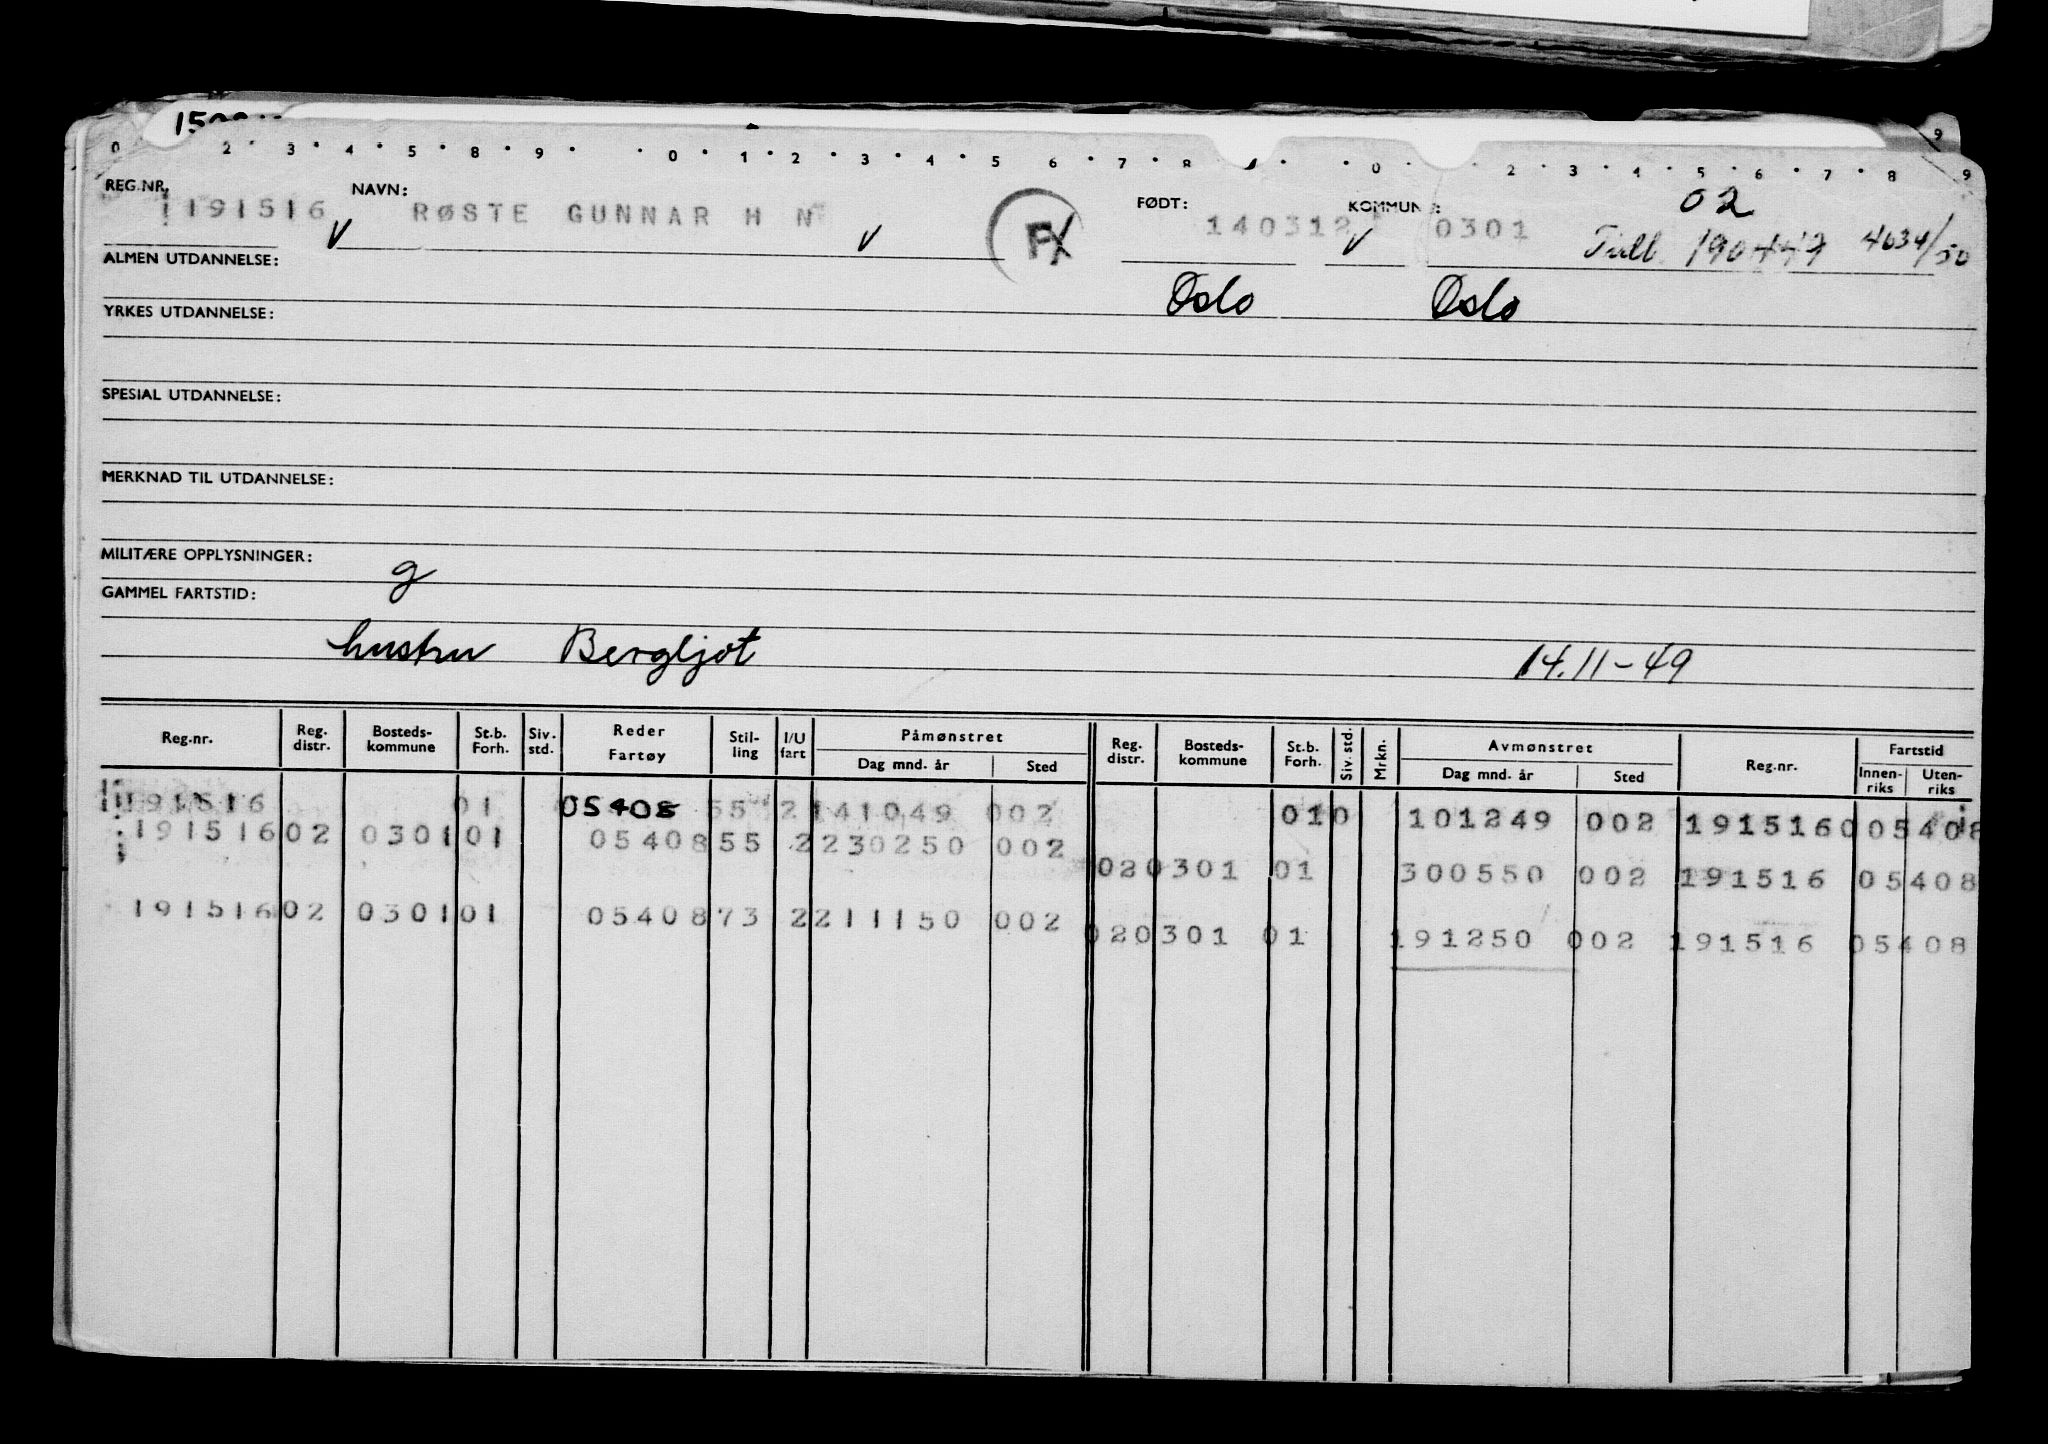 0 2 3 4 5 8 9 0 1 2 3 4 5 6 7 8 0 2 3 4 5 6 7 8 9
REG.NR. 191516 NAVN: RØSTE GUNNAR H N FØDT: 140312 KOMMUNE: 0301 02
4034/50
ALMEN UTDANNELSE:
Oslo Oslo
YRKES UTDANNELSE:
SPESIAL UTDANNELSE:
MERKNAD TIL UTDANNELSE:
MILITÆRE OPPLYSNINGER: g
GAMMEL FARTSTID:
hustru Bergljot 14.11-49
Reg.nr. Reg. distr. Bosteds-kommune St.b. Forh. Siv. std. Reder Fartøy Stil-ling I/U fart Påmønstret Dag mnd. år Sted Reg. distr. Bosteds-kommune St.b. Forh. Siv. std. Mrkn. Avmønstret Dag mnd. år Sted Reg.nr. Fartstid Innen-riks Uten-riks
191516 01 05408 55 2 141049 002 010 101249 002 191516 0 05408
191516 02 0301 01 05408 55 2 230250 002
02 0301 01 300550 002 191516 05408
191516 02 0301 01 05408 73 2 211150 002
02 0301 01 191250 002 191516 05408